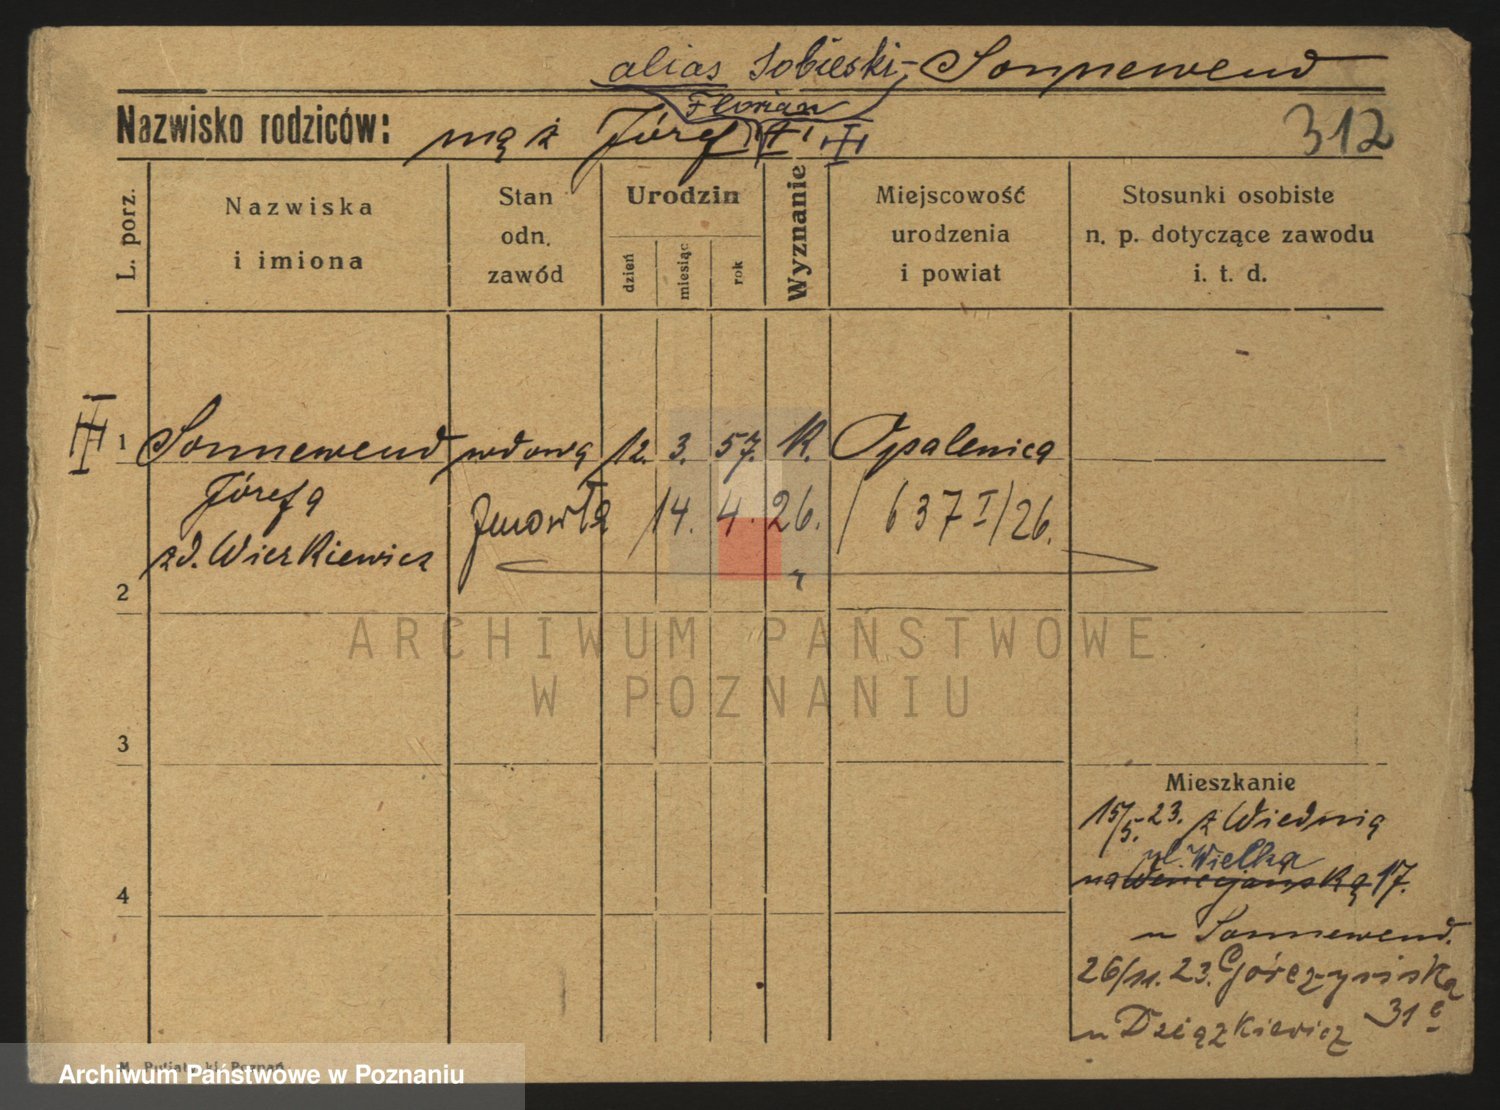 alias Sobieski-Sonnewend
Florian
Nazwisko rodziców: mąż Józef
312
L. porz.
Nazwiska
i imiona
Stan
odn.
zawód
Urodzin
dzień
miesiąc
rok
Wyznanie
Miejscowość
urodzenia
i powiat
Stosunki osobiste
n. p. dotyczące zawodu
i. t. d.
1 Sonnewend wdowa 12. 3. 57. K. Opalenica
Józefa
zd. Wierkiewicz
zmarła 14. 4. 26. / 637 I/26.
2
ARCHIWUM PAŃSTWOWE
W POZNANIU
3
Mieszkanie
15/5. 23. z Wiednia
ul. Wielka
na Wenecjańską 17.
u Sonnewend.
26/11. 23. Górczyńska
31 c
u Dziązkiewicz
4
Poznań
Archiwum Państwowe w Poznaniu